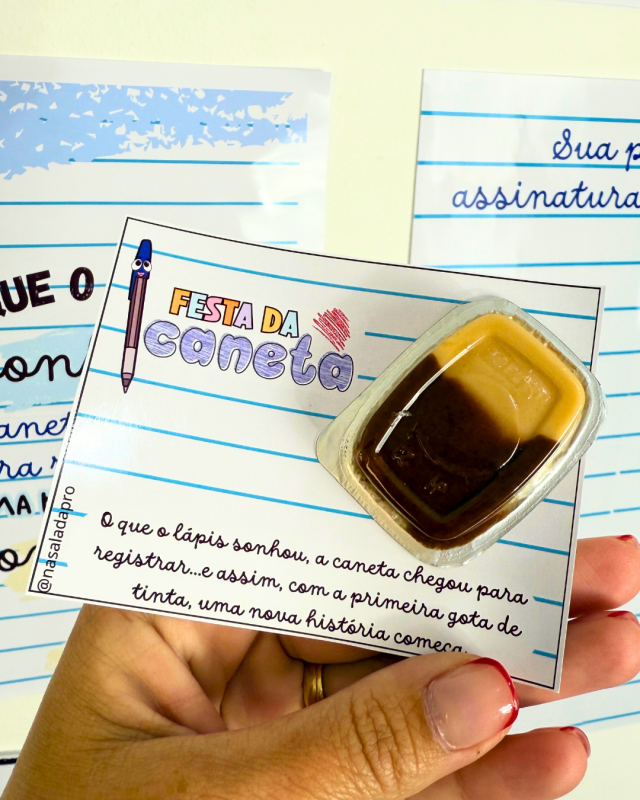 Sua p
assinatura
QUE O
FESTA DA
caneta
@nasaladapro
O que o lápis sonhou, a caneta chegou para
registrar...e assim, com a primeira gota de
tinta, uma nova história começa